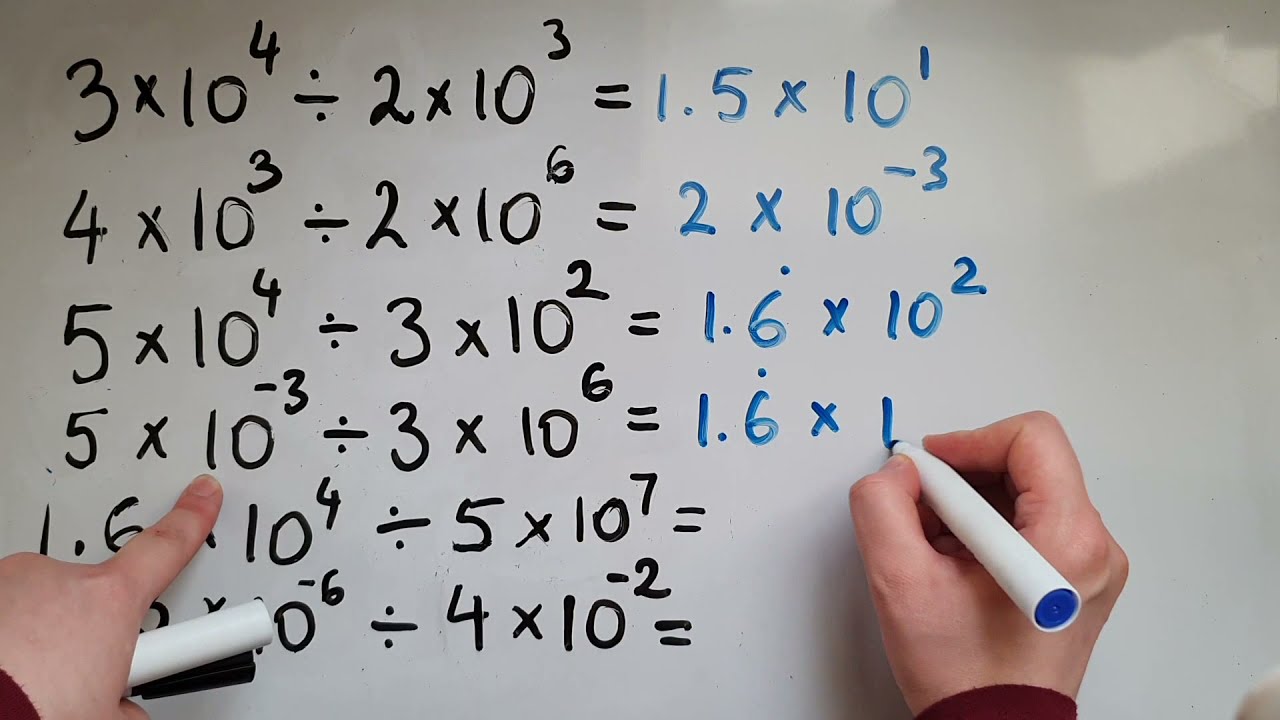 3×10⁴ ÷ 2×10³ = 1.5 × 10¹
4 × 10³ ÷ 2 × 10⁶ = 2 × 10⁻³
5 × 10⁴ ÷ 3 × 10² = 1.6̇ × 10²
5 × 10⁻³ ÷ 3 × 10⁶ = 1.6̇ × 1
1.6 × 10⁴ ÷ 5 × 10⁷ =
× 10⁻⁶ ÷ 4 × 10⁻² =